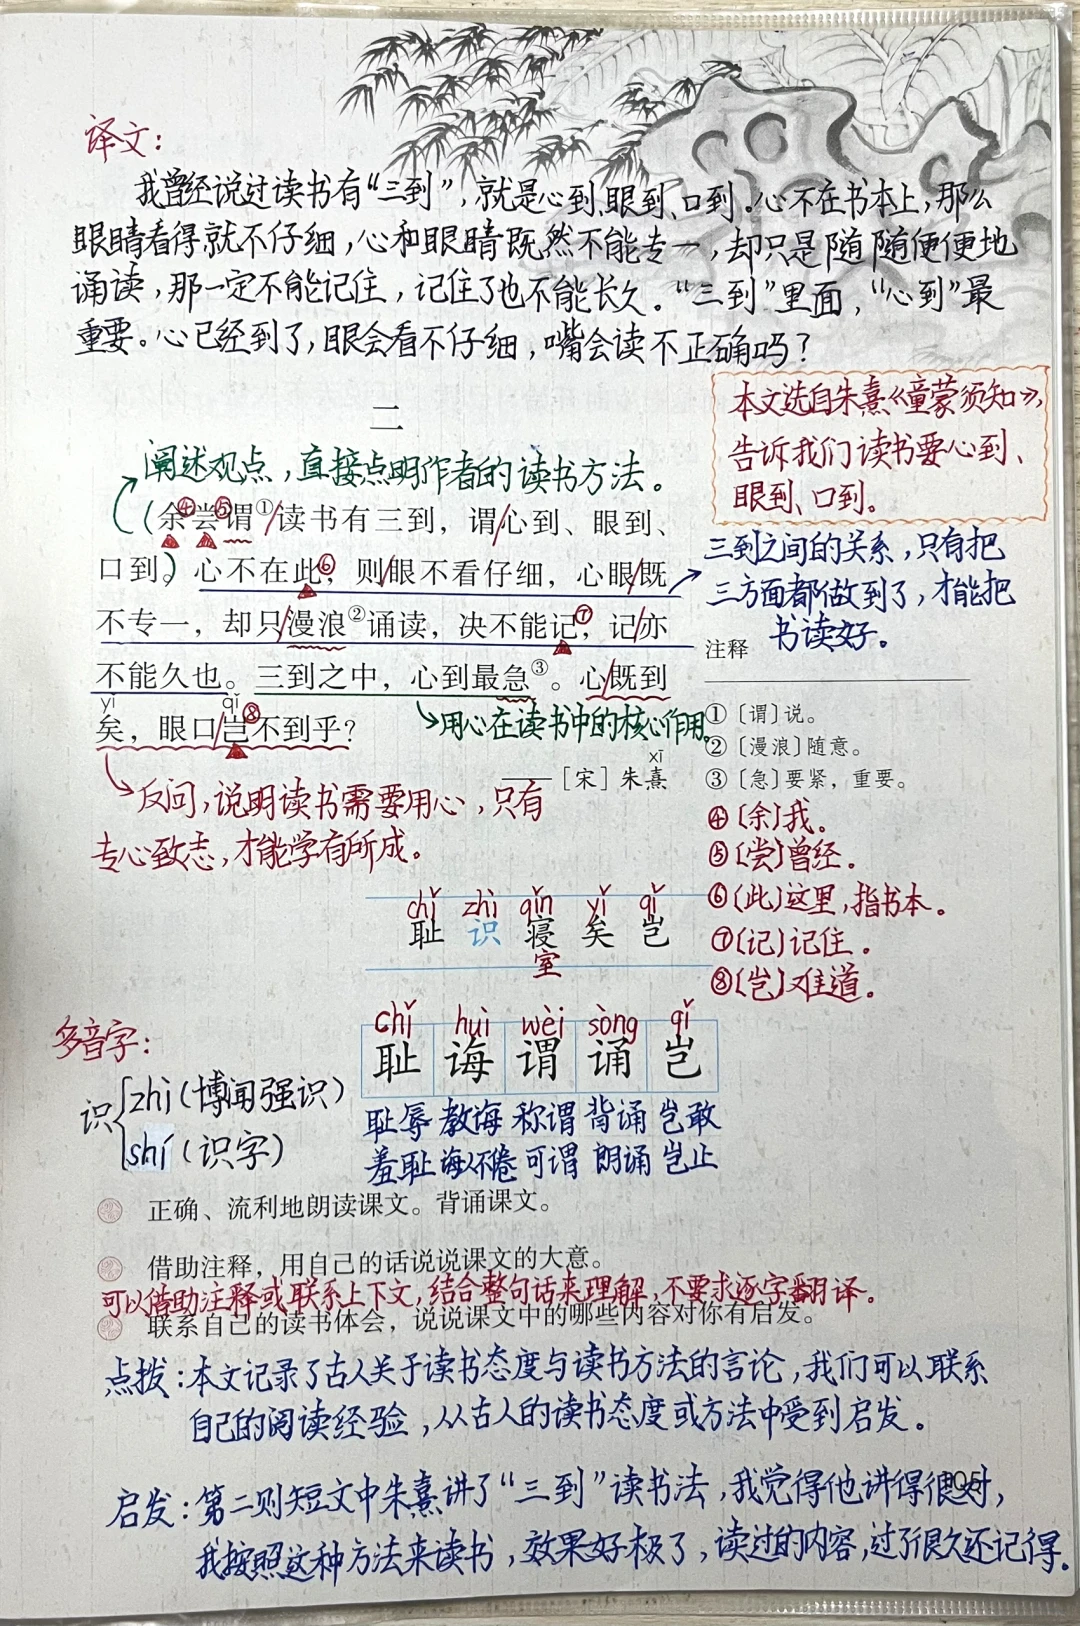 译文：
我曾经说过读书有“三到”，就是心到、眼到、口到。心不在书本上，那么
眼睛看得就不仔细，心和眼睛既然不能专一，却只是随随便便地
诵读，那一定不能记住，记住了也不能长久。“三到”里面，“心到”最
重要。心已经到了，眼会看不仔细，嘴会读不正确吗？
本文选自朱熹《童蒙须知》，
告诉我们读书要心到、
眼到、口到。
二
阐述观点，直接点明作者的读书方法。
（余④尝⑤谓①/读书有三到，谓/心到、眼到、
口到。）心不在此⑥，则/眼不看仔细，心眼/既
不专一，却只/漫浪②诵读，决不能记⑦，记/亦
不能久也。三到之中，心到最急③。心/既到
yǐ qǐ
矣，眼口/岂⑧不到乎？
三到之间的关系，只有把
三方面都做到了，才能把
书读好。
用心在读书中的核心作用。
xī
——［宋］朱熹
反问，说明读书需要用心，只有
专心致志，才能学有所成。
注释
①〔谓〕说。
②〔漫浪〕随意。
③〔急〕要紧，重要。
④〔余〕我。
⑤〔尝〕曾经。
⑥〔此〕这里，指书本。
⑦〔记〕记住。
⑧〔岂〕难道。
chǐ zhì qǐn yǐ qǐ
耻 识 寝 矣 岂
室
chǐ huì wèi sòng qǐ
耻 诲 谓 诵 岂
耻辱 教诲 称谓 背诵 岂敢
羞耻 诲人不倦 可谓 朗诵 岂止
多音字：
识
zhì（博闻强识）
shí（识字）
正确、流利地朗读课文。背诵课文。
借助注释，用自己的话说说课文的大意。
可以借助注释或联系上下文，结合整句话来理解，不要求逐字翻译。
联系自己的读书体会，说说课文中的哪些内容对你有启发。
点拨：本文记录了古人关于读书态度与读书方法的言论，我们可以联系
自己的阅读经验，从古人的读书态度或方法中受到启发。
启发：第二则短文中朱熹讲了“三到”读书法，我觉得他讲得很对，
我按照这种方法来读书，效果好极了，读过的内容，过了很久还记得。